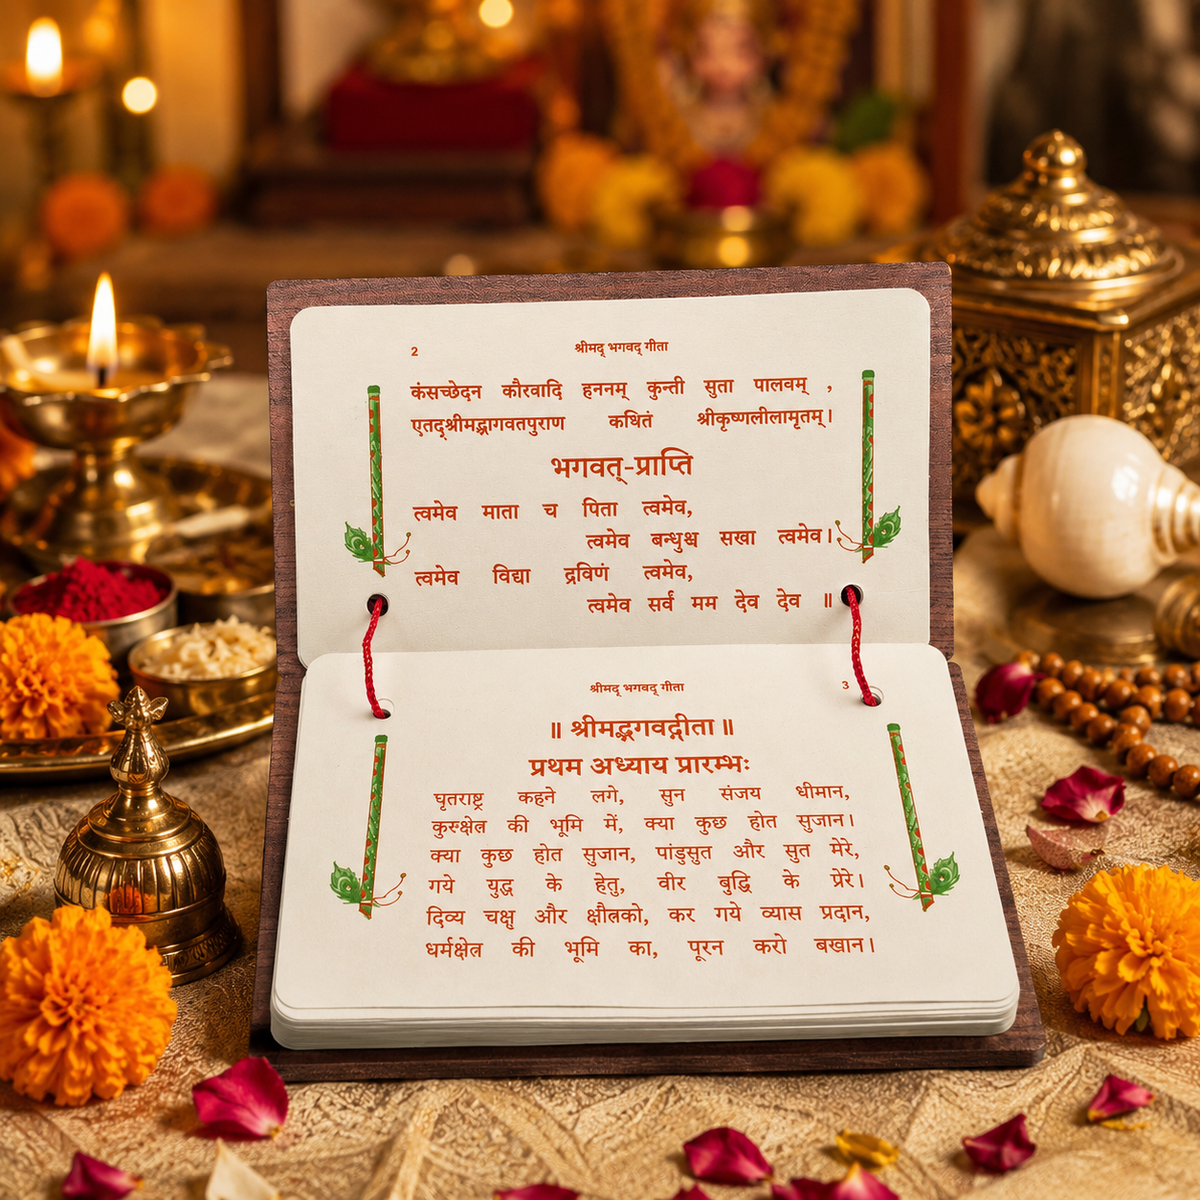 2
श्रीमद् भगवद् गीता
कंसच्छेदन कौरवादि हननम् कुन्ती सुता पालवम् ,
एतद्श्रीमद्भागवतपुराण कथितं श्रीकृष्णलीलामृतम्।
भगवत्-प्राप्ति
त्वमेव माता च पिता त्वमेव,
त्वमेव बन्धुश्च सखा त्वमेव।
त्वमेव विद्या द्रविणं त्वमेव,
त्वमेव सर्वं मम देव देव ॥
श्रीमद् भगवद् गीता
3
॥ श्रीमद्भगवद्गीता ॥
प्रथम अध्याय प्रारम्भः
घृतराष्ट्र कहने लगे, सुन संजय धीमान,
कुरुक्षेत्र की भूमि में, क्या कुछ होत सुजान।
क्या कुछ होत सुजान, पांडुसुत और सुत मेरे,
गये युद्ध के हेतु, वीर बुद्धि के प्रेरे।
दिव्य चक्षु और क्षौत्रको, कर गये व्यास प्रदान,
धर्मक्षेत्र की भूमि का, पूरन करो बखान।